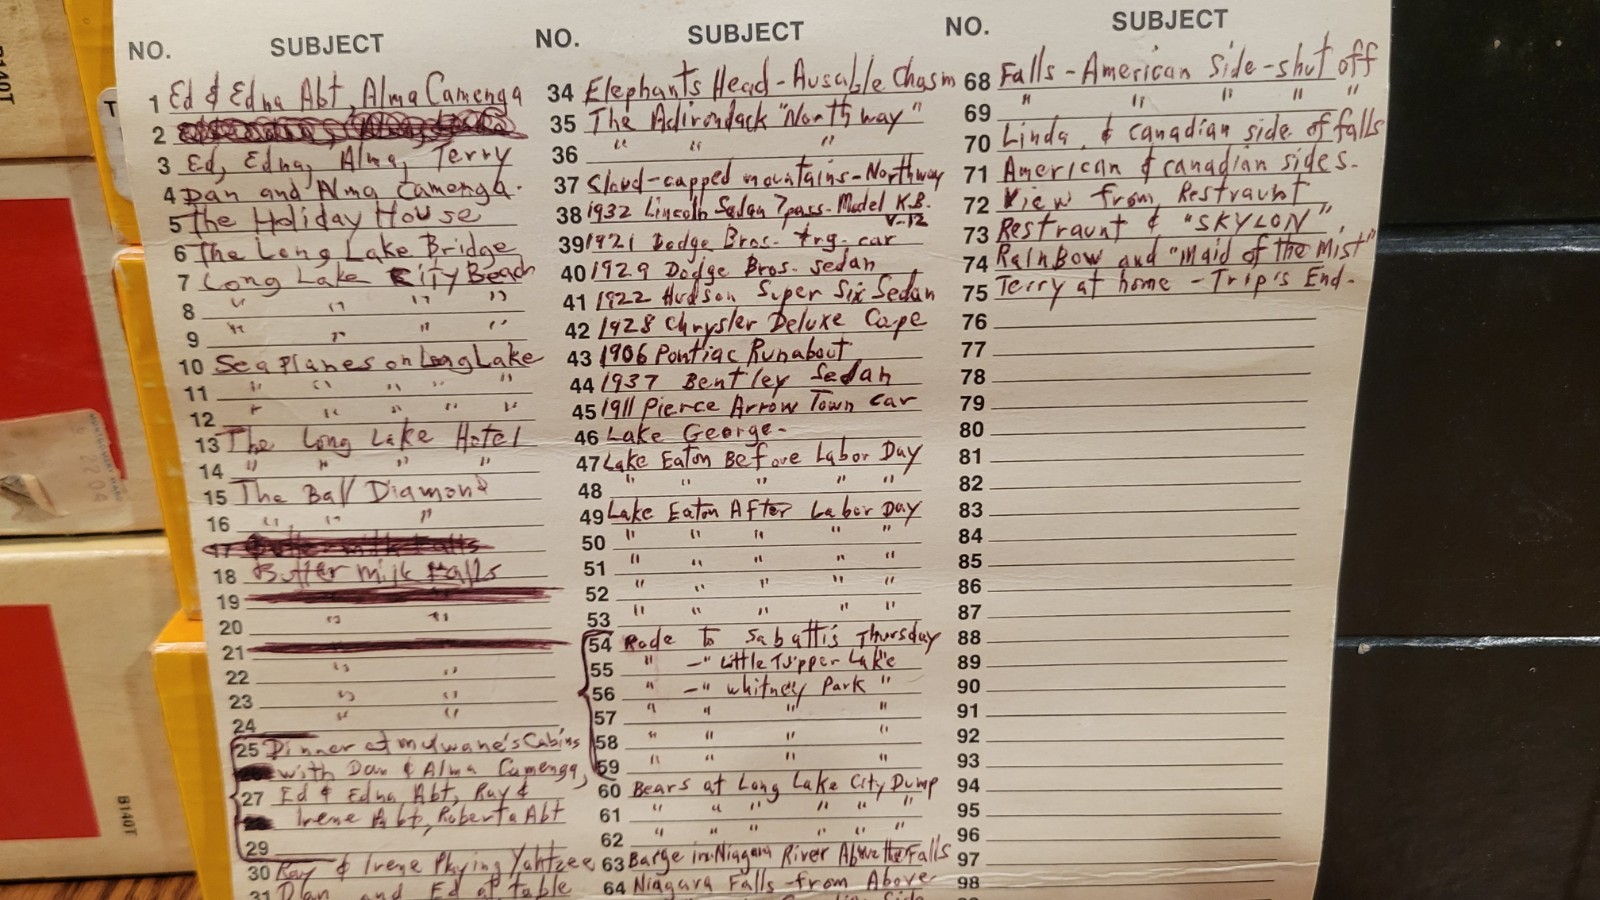 NO. SUBJECT
1 Ed & Edna Abt, Alma Camenga
2
3 Ed, Edna, Alma, Terry
4 Dan and Alma Camenga.
5 The Holiday House
6 The Long Lake Bridge
7 Long Lake City Beach
8 " " " "
9 " " " "
10 Sea Planes on Long Lake
11 " " " " "
12 " " " " "
13 The Long Lake Hotel
14 " " " "
15 The Ball Diamond
16 " " "
17 Butter milk Falls
18 Butter milk Falls
19
20 " "
21
22 " "
23 " "
24 " "
25 Dinner at mulwane's Cabins
with Dan & Alma Camenga,
27 Ed & Edna Abt, Ray &
Irene Abt, Roberta Abt
29
30 Ray & Irene Playing Yahtzee
31 Dan and Ed at table
NO. SUBJECT
34 Elephants Head - Ausable Chasm
35 The Adirondack "North way"
36 " " "
37 Cloud-capped mountains - Northway
38 1932 Lincoln Sedan 7 pass. Model K.B.
V-12
39 1921 Dodge Bros. trg. car
40 1929 Dodge Bros. sedan
41 1922 Hudson Super Six Sedan
42 1928 Chrysler Deluxe Cape
43 1906 Pontiac Runabout
44 1937 Bentley Sedan
45 1911 Pierce Arrow Town car
46 Lake George -
47 Lake Eaton Before Labor Day
48 " " " " "
49 Lake Eaton After Labor Day
50 " " " " "
51 " " " " "
52 " " " " "
53 " " " " "
54 Rode to Sabattis Thursday
55 " - " Little Tupper Lake
56 " - " Whitney Park "
57 " " " "
58 " " " "
59 " " " "
60 Bears at Long Lake City Dump
61 " " " " " "
62 " " " " " "
63 Barge in Niagara River Above the Falls
64 Niagara Falls - from Above
Side
NO. SUBJECT
68 Falls - American Side - shut off
69 " " " " "
70 Linda & Canadian side of falls
71 American & canadian sides.
72 View from Restraunt
73 Restraunt & "SKYLON"
74 RainBow and "Maid of the Mist"
75 Terry at home - Trip's End.
76
77
78
79
80
81
82
83
84
85
86
87
88
89
90
91
92
93
94
95
96
97
98
B140T
B140T
T